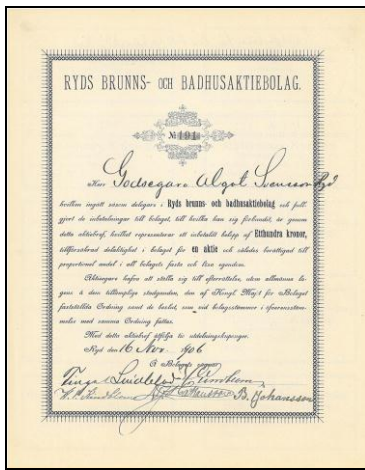 RYDS BRUNNS- OCH BADHUSAKTIEBOLAG.
№ 191
Herr Godsegare Algot Svensson Ryd
hvilken ingått såsom delägare i Ryds brunns- och badhusaktiebolag och full-
gjort de inbetalningar till bolaget, till hvilka han sig förbundit, är genom
detta aktiebref, hvilket representerar ett inbetaldt belopp af Etthundra kronor,
tillförsäkrad delaktighet i bolaget för en aktie och således berättigad till
proportionel andel i all bolagets fasta och lösa egendom.
Aktieägare hafva att ställa sig till efterrättelse, utom allmänna la-
gens å dem tillämpliga stadganden, den af Kongl. Maj:t för Bolaget
fastställda Ordning samt de beslut, som vid bolagsstämmor i öfverensstäm-
melse med samma Ordning fattas.
Med detta aktiebref åtfölja tio utdelningskuponger.
Ryd den 16 Nov. 1906
Å Bolagets vägnar
Lindblad
B. Johansson